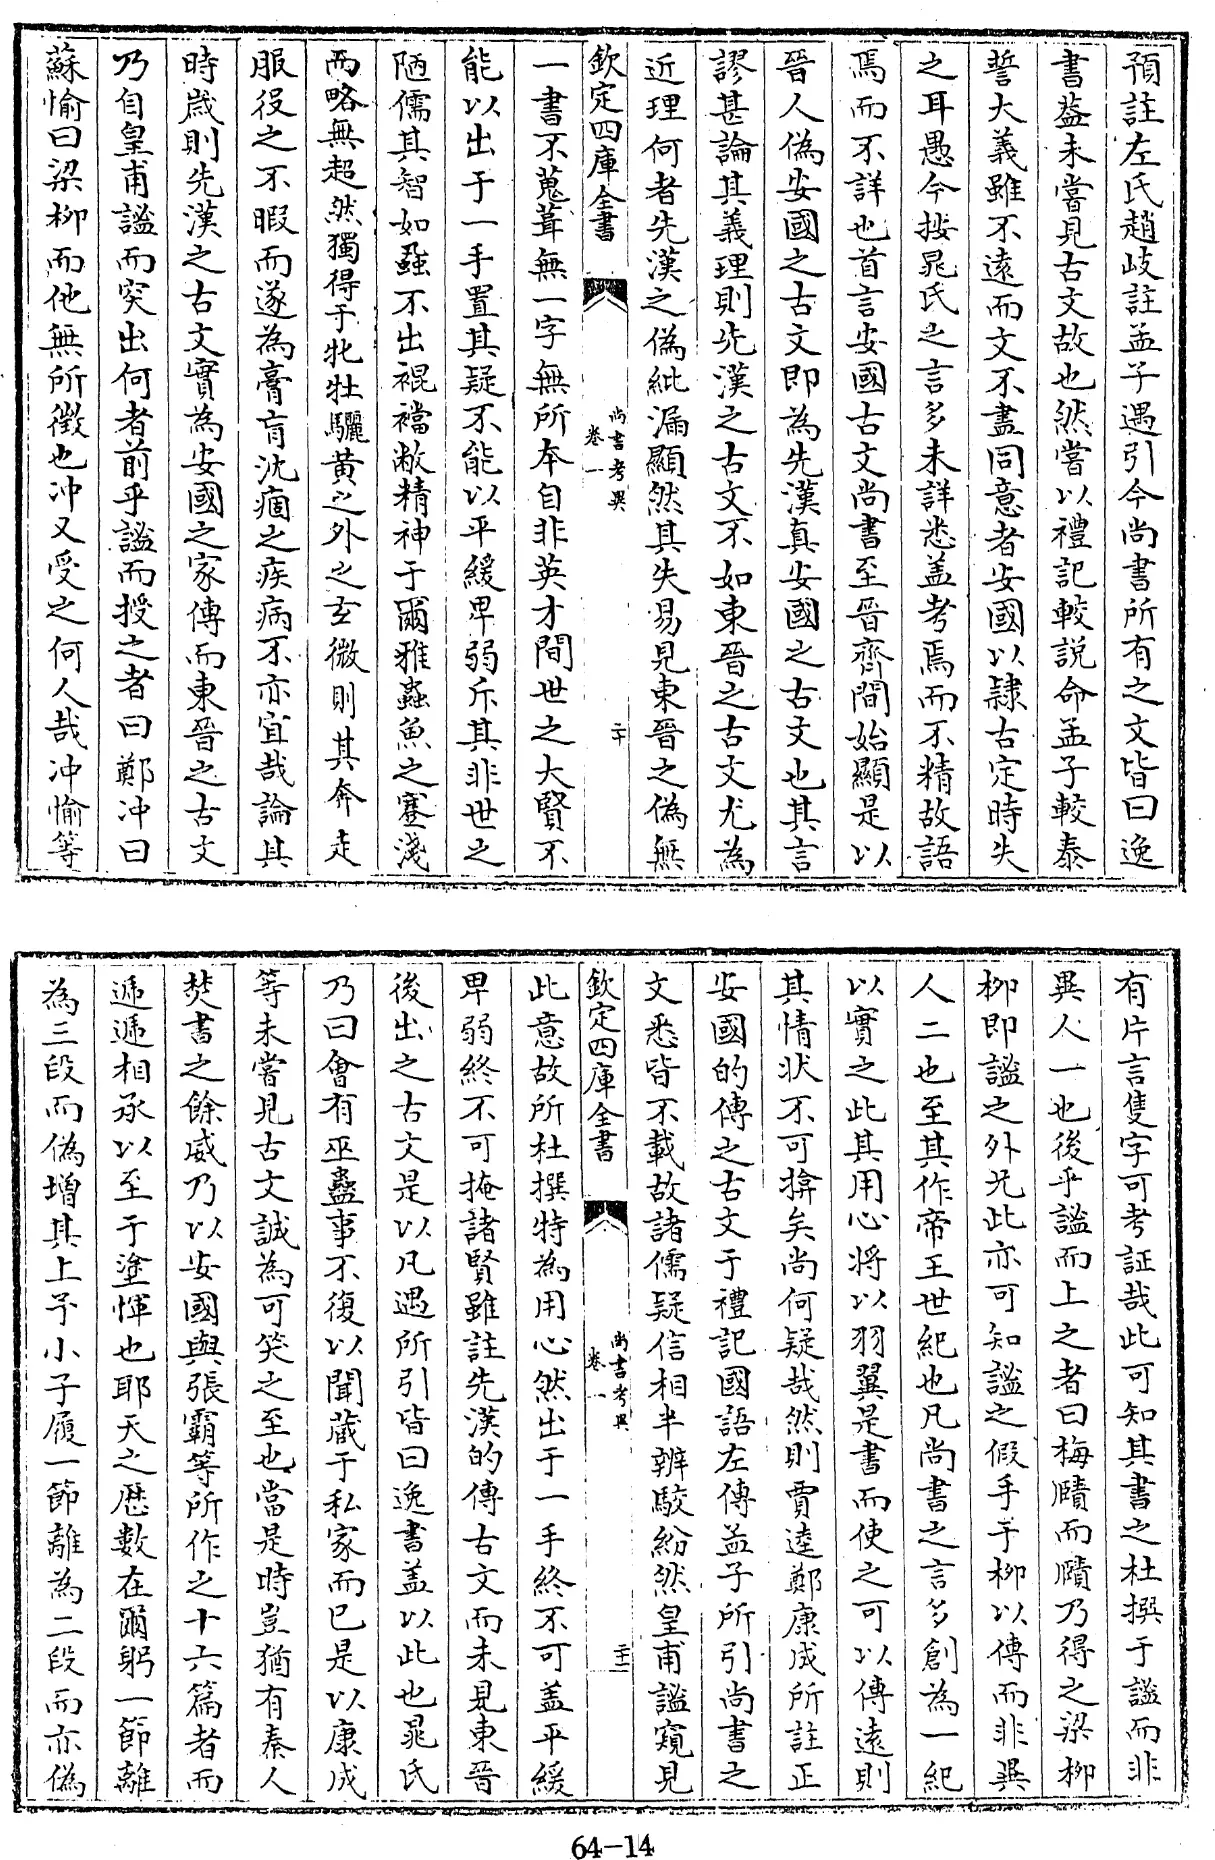 預註左氏趙岐註孟子遇引今尚書所有之文皆曰逸
書葢未嘗見古文故也然嘗以禮記較說命孟子較泰
誓大義雖不逺而文不盡同意者安國以隸古定時失
之耳愚今按晁氏之言多未詳悉盖考焉而不精故語
焉而不詳也首言安國古文尚書至晉齊間始顯是以
晉人偽安國之古文即為先漢真安國之古文也其言
謬甚論其義理則先漢之古文不如東晉之古文尤為
近理何者先漢之偽紕漏顯然其失易見東晉之偽無
欽定四庫全書
尚書考異
卷一
二十
一書不蒐葺無一字無所本自非英才間世之大賢不
能以出于一手置其疑不能以平緩卑弱斥其非世之
陋儒其智如蝨不出裩襠敝精神于爾雅蟲魚之蹇淺
而略無超然獨得于牝牡驪黄之外之𤣥微則其奔走
服役之不暇而遂為膏肓沈痼之疾病不亦宜哉論其
時歲則先漢之古文實為安國之家傳而東晉之古文
乃自皇甫謐而突出何者前乎謐而授之者曰鄭冲曰
蘇愉曰梁柳而他無所徵也冲又受之何人哉冲愉等
有片言隻字可考証哉此可知其書之杜撰于謐而非
異人一也後乎謐而上之者曰梅賾而賾乃得之梁柳
柳即謐之外兄此亦可知謐之假手于柳以傳而非異
人二也至其作帝王世紀也凡尚書之言多創為一紀
以實之此其用心將以羽翼是書而使之可以傳逺則
其情狀不可揜矣尚何疑哉然則賈逵鄭康成所註正
安國的傳之古文于禮記國語左傳孟子所引尚書之
文悉皆不載故諸儒疑信相半辨駮紛然皇甫謐窺見
欽定四庫全書
尚書考異
卷一
二十一
此意故所杜撰特為用心然出于一手終不可盖平緩
卑弱終不可掩諸賢雖註先漢的傳古文而未見東晉
後出之古文是以凡遇所引皆曰逸書盖以此也晁氏
乃曰會有巫蠱事不復以聞藏于私家而已是以康成
等未嘗見古文誠為可笑之至也當是時豈猶有秦人
焚書之餘威乃以安國與張霸等所作之十六篇者而
遞遞相承以至于塗惲也耶天之厯數在爾躬一節離
為三段而偽增其上予小子履一節離為二段而亦偽
64-14